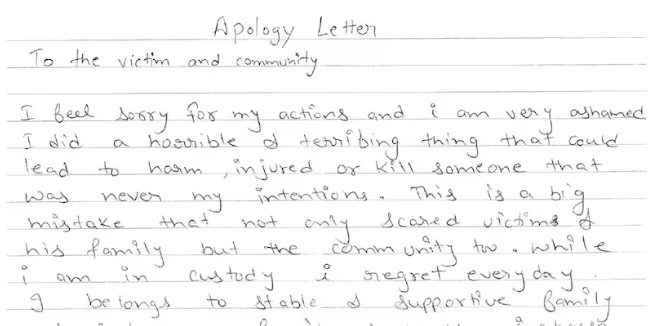 Apology Letter
To the victim and community
I feel sorry for my actions and i am very ashamed
I did a horrible & terribing thing that could
lead to harm , injured or kill someone that
was never my intentions. This is a big
mistake that not only scared victims &
his family but the community too. while
i am in custody i regret everyday.
I belongs to stable & supportive family